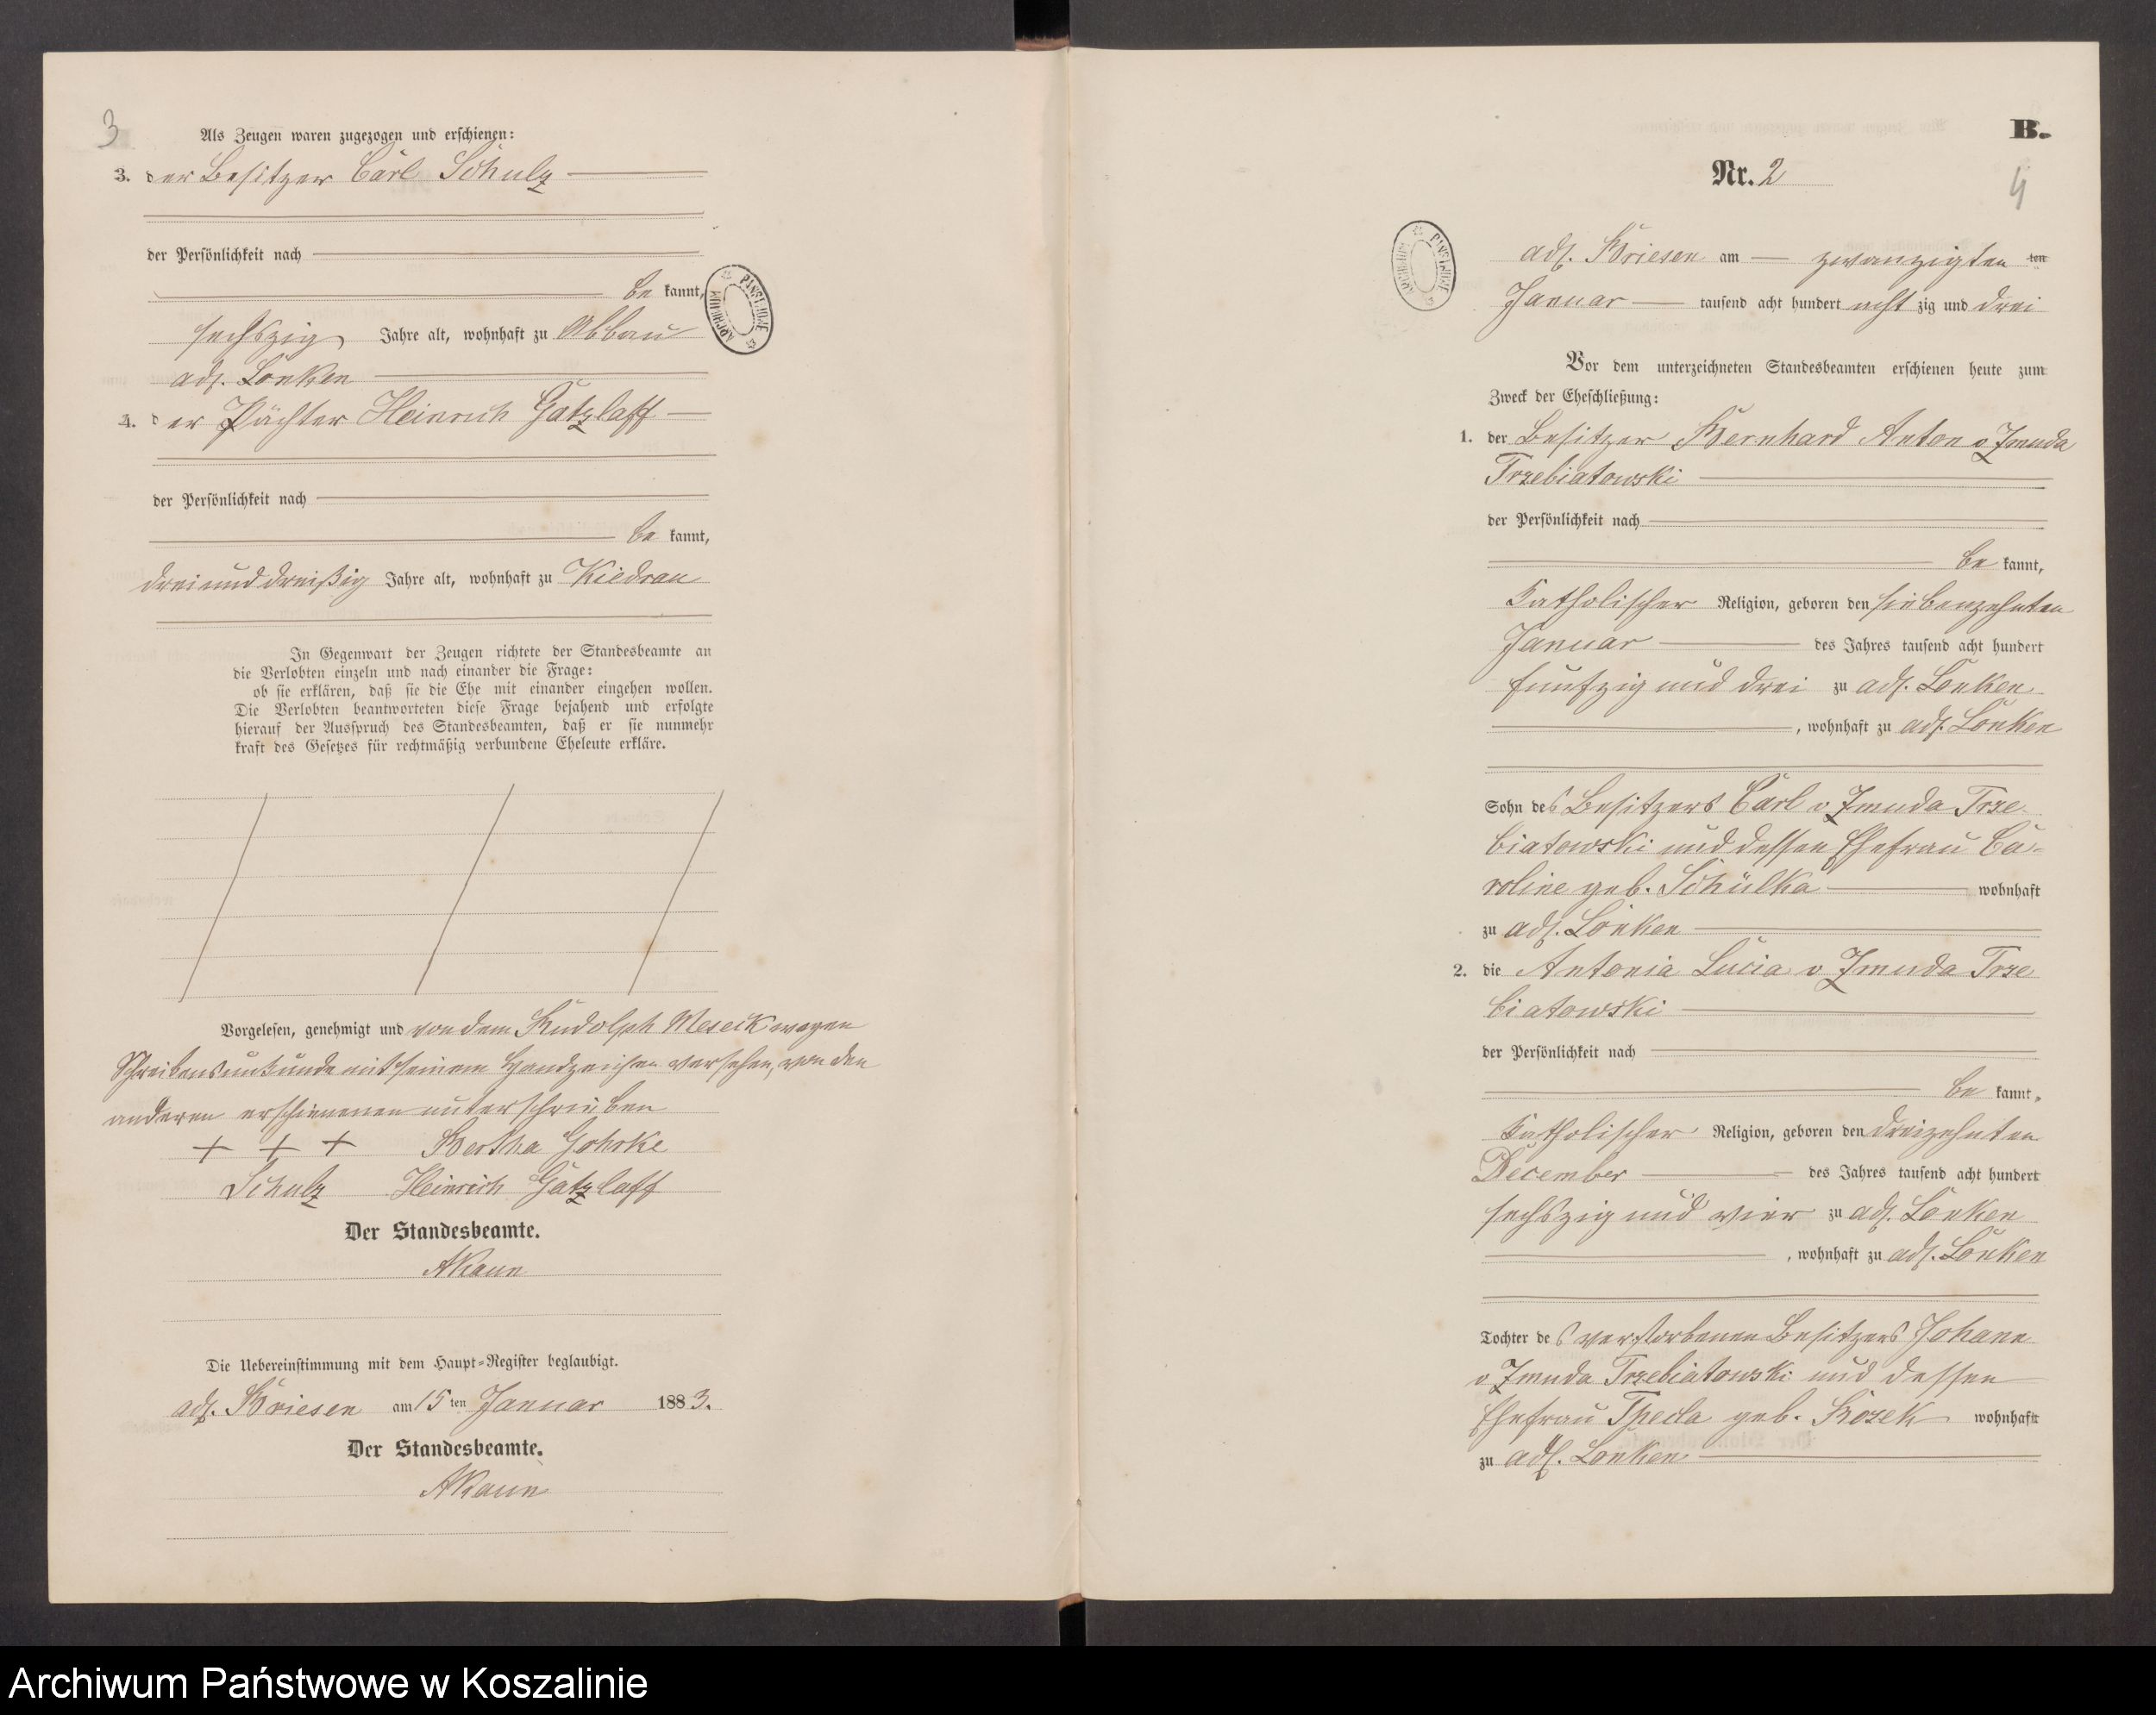 3
Als Zeugen waren zugezogen und erschienen:
3. der Besitzer Carl Schulz
der Persönlichkeit nach
be kannt,
sechszig Jahre alt, wohnhaft zu Abbau
adl. Lonken
4. der Pächter Heinrich Gatzlaff
der Persönlichkeit nach
be kannt,
dreiunddreißig Jahre alt, wohnhaft zu Kiedrau
In Gegenwart der Zeugen richtete der Standesbeamte an
die Verlobten einzeln und nach einander die Frage:
ob sie erklären, daß sie die Ehe mit einander eingehen wollen.
Die Verlobten beantworteten diese Frage bejahend und erfolgte
hierauf der Ausspruch des Standesbeamten, daß er sie nunmehr
kraft des Gesetzes für rechtmäßig verbundene Eheleute erkläre.
Vorgelesen, genehmigt und von dem Rudolph Meseck wegen
Schreibensunkunde mit seinem Handzeichen versehen, von den
anderen erschienenen unterschrieben
+ + + Bertha Gohrke
Schulz Heinrich Gatzlaff
Der Standesbeamte.
Die Uebereinstimmung mit dem Haupt-Register beglaubigt.
adl. Briesen am 15ten Januar 1883.
Der Standesbeamte.
B.
Nr. 2
4
adl. Briesen am zwanzigten ten
Januar tausend acht hundert acht zig und drei
Vor dem unterzeichneten Standesbeamten erschienen heute zum
Zweck der Eheschließung:
1. der Besitzer Bernhard Anton v Zmuda
Trzebiatowski
der Persönlichkeit nach
be kannt,
katholischer Religion, geboren den siebenzehnten
Januar des Jahres tausend acht hundert
funfzig und drei zu adl. Lonken
, wohnhaft zu adl. Lonken
Sohn des Besitzers Carl v Zmuda Trze-
biatowski und dessen Ehefrau Ca-
roline geb. Schülka wohnhaft
zu adl. Lonken
2. die Antonia Lucia v Zmuda Trze
biatowski
der Persönlichkeit nach
be kannt,
katholischer Religion, geboren den dreizehnten
December des Jahres tausend acht hundert
sechszig und vier zu adl. Lonken
, wohnhaft zu adl. Lonken
Tochter des verstorbenen Besitzers Johann
v Zmuda Trzebiatowski und dessen
Ehefrau Thecla geb. wohnhaft
zu adl. Lonken
Archiwum Państwowe w Koszalinie